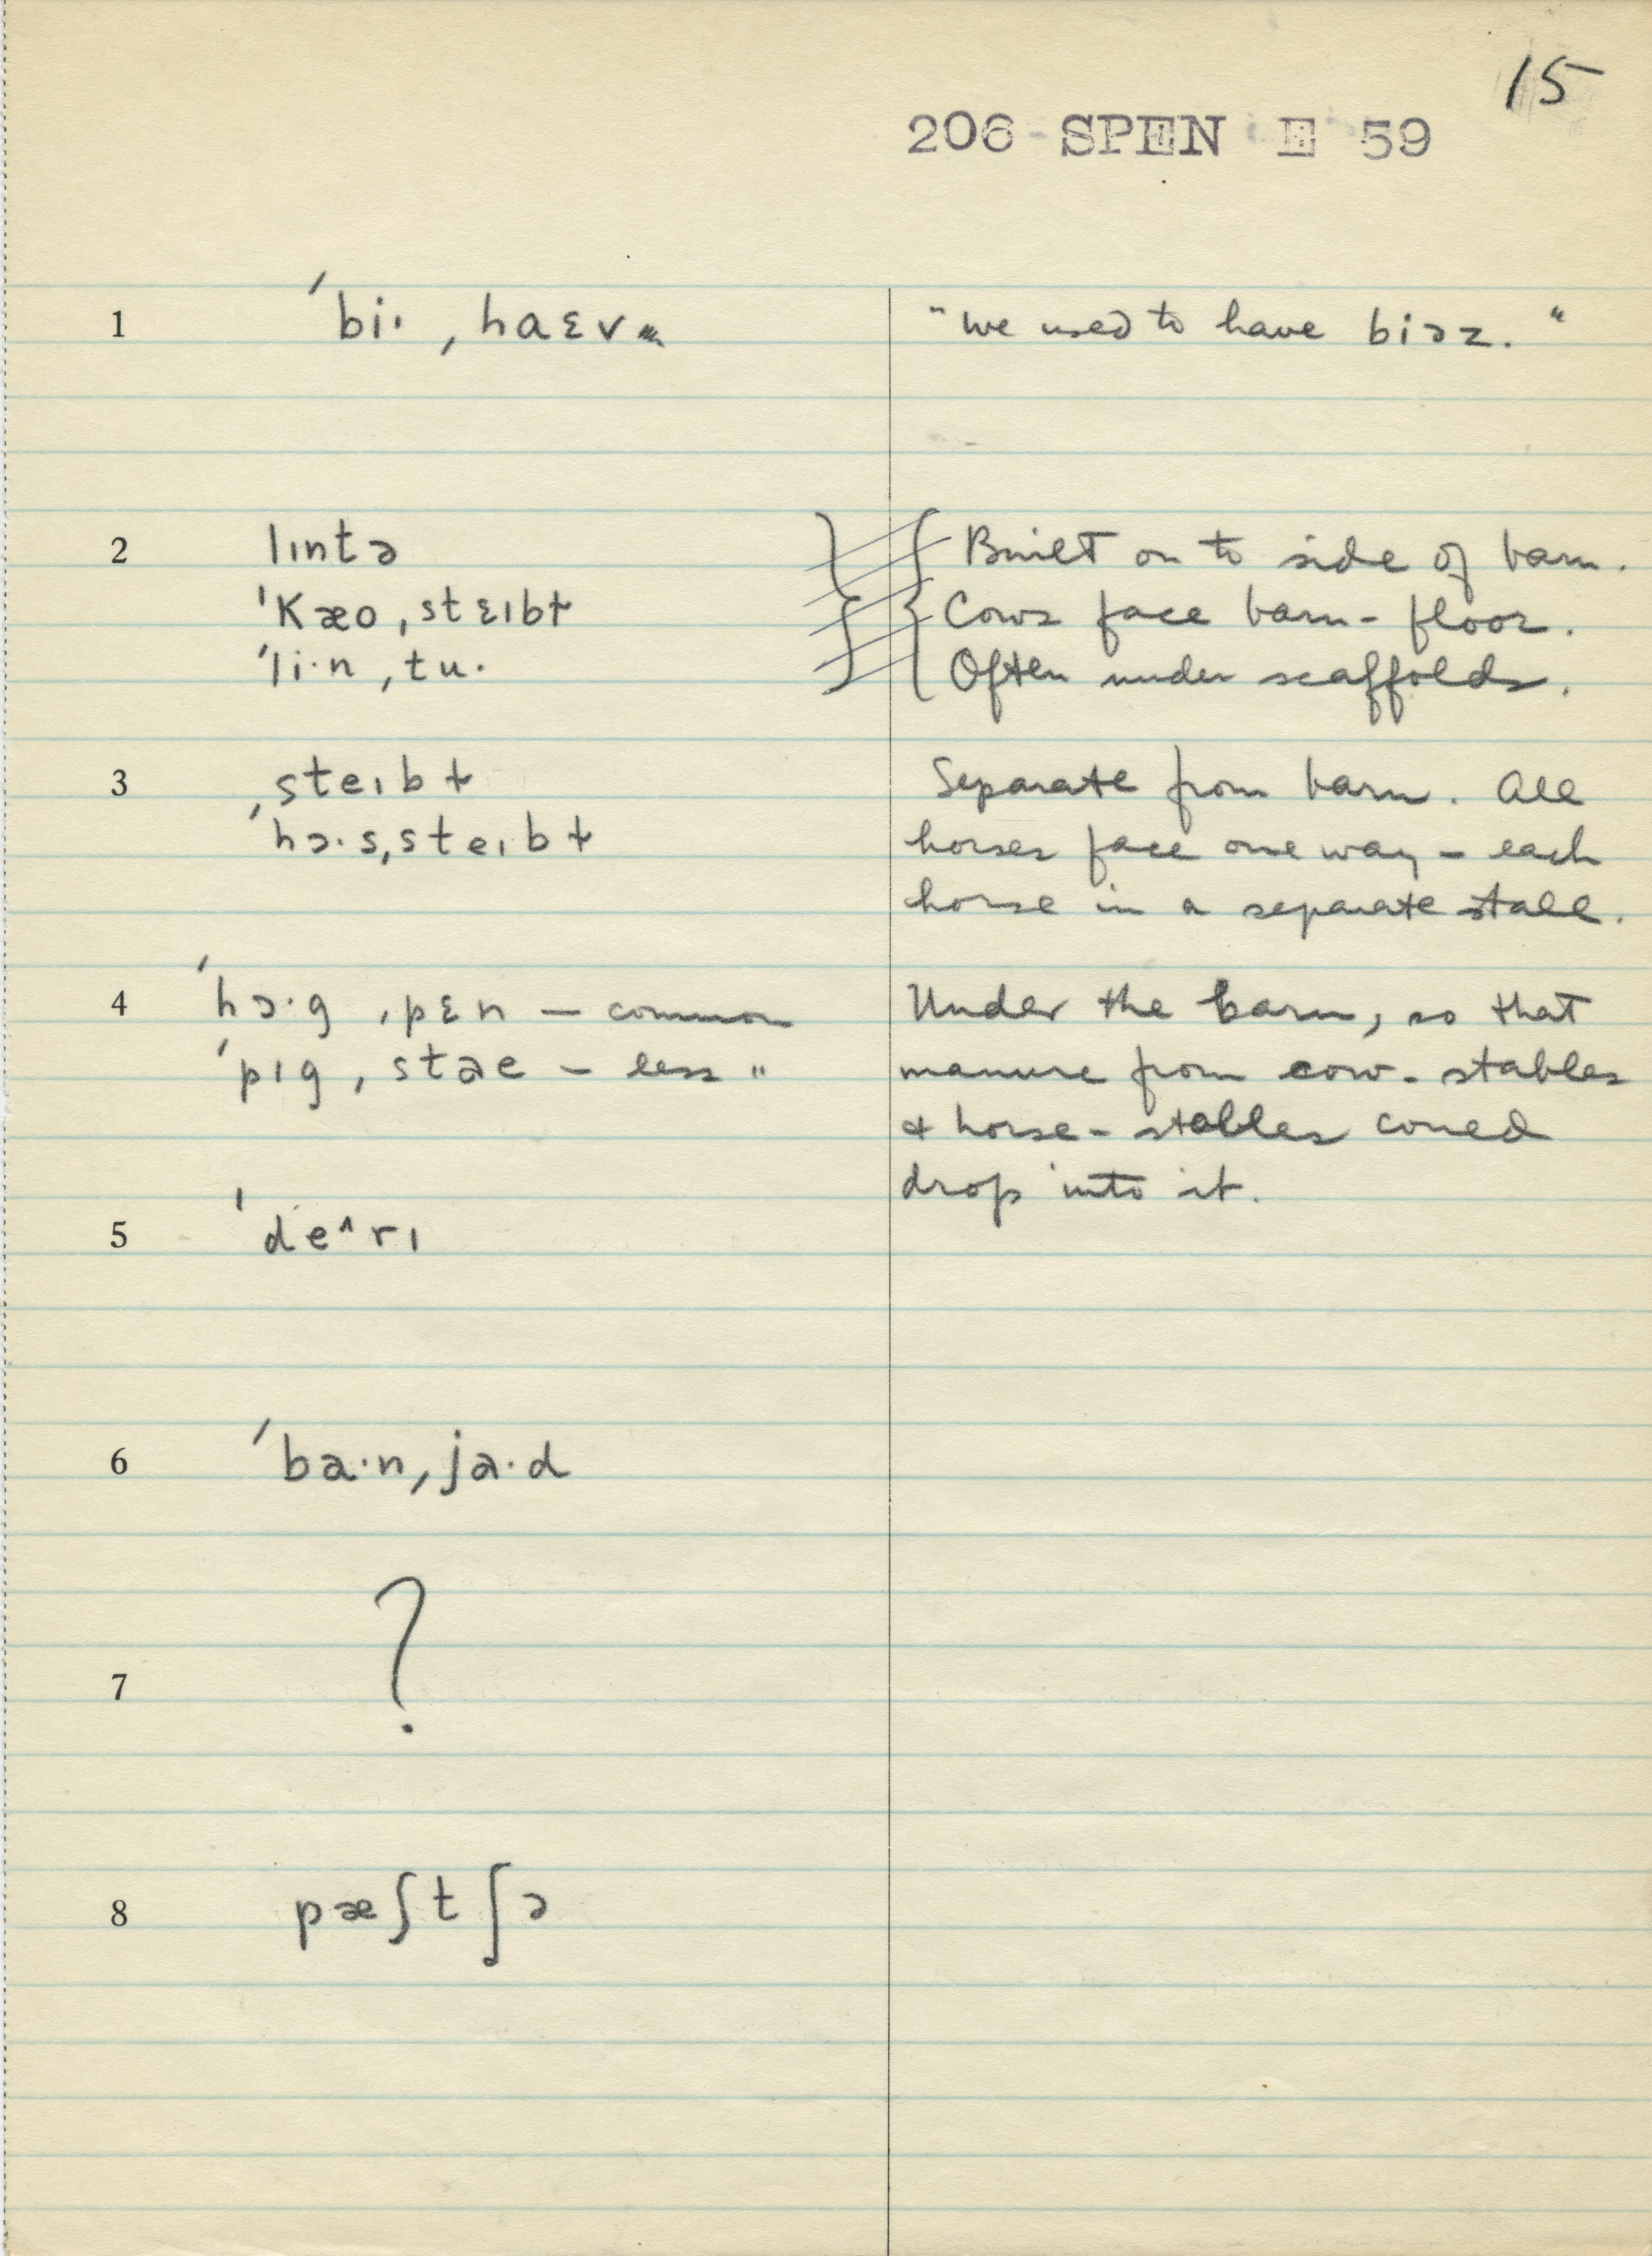 15
206 SPEN E 59
1 ˈbiɪ· ˌhaɛv "we used to have biəz."
2 lɪntə Built on to side of barn.
ˈkæoˌstɛɪbɫ Cows face barn-floor.
ˈli·nˌtu· Often under scaffolds.
3 ˌsteɪbɫ Separate from barn. All
ˈhɔ·sˌsteɪbɫ horses face one way – each
horse in a separate stall.
4 ˈhɔ·gˌpɛn – common Under the barn, so that
ˈpɪgˌstae – less " manure from cow-stables
& horse-stables could
drop into it.
5 ˈde^rɪ
6 ˈba·nˌja·d
7 ?
8 pæʃtʃə